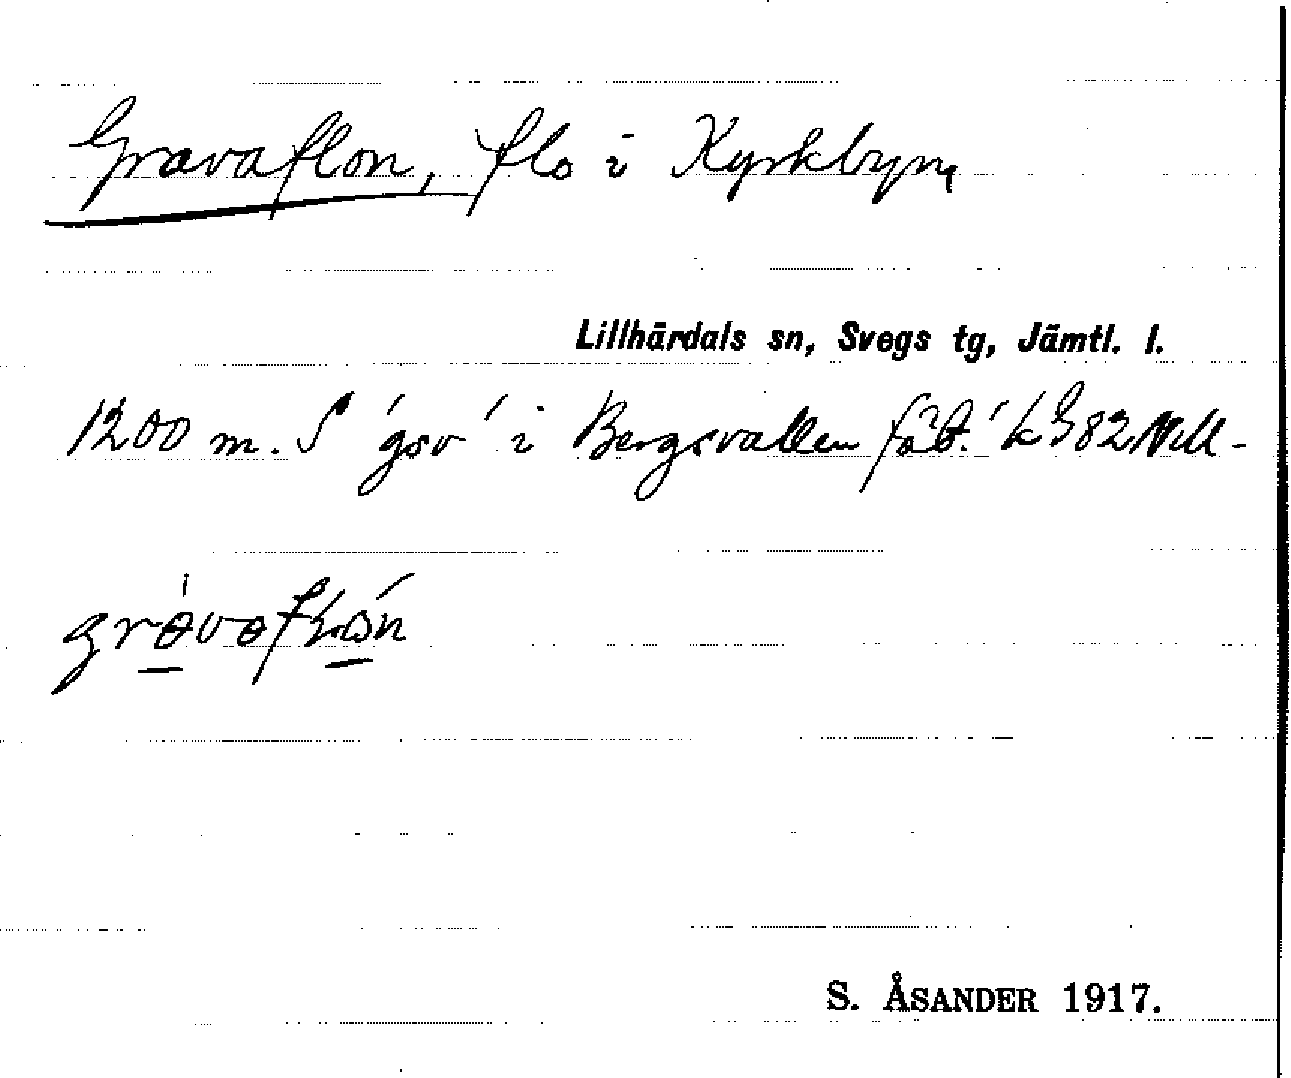 Gravaflon, flo i Kyrkbyn,
Lillhärdals sn, Svegs tg, Jämtl. l.
1200 m. S 'gsv' i Bergsvallen fäb. k G 82 NVM -
S. ÅSANDER 1917.